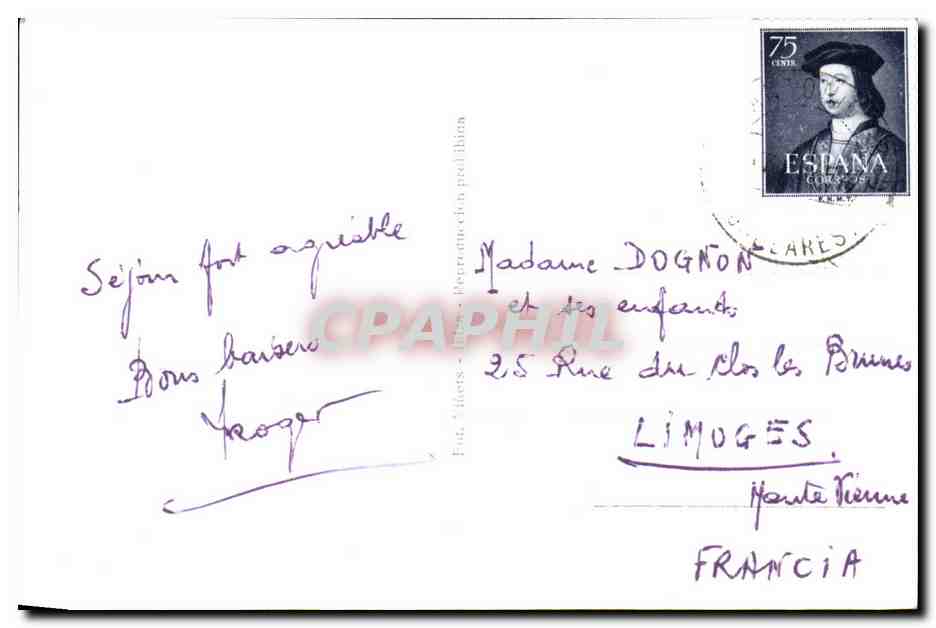 Séjour fort agréable
Bons baisers
Roger
Fot. - Reproducción prohibida
75
CENTS.
ESPAÑA
CORREOS
F.N.M.T.
Madame DOGNON
et ses enfants
25 Rue du Clos les Brunes
LIMOGES
Haute Vienne
FRANCIA
CPAPHIL